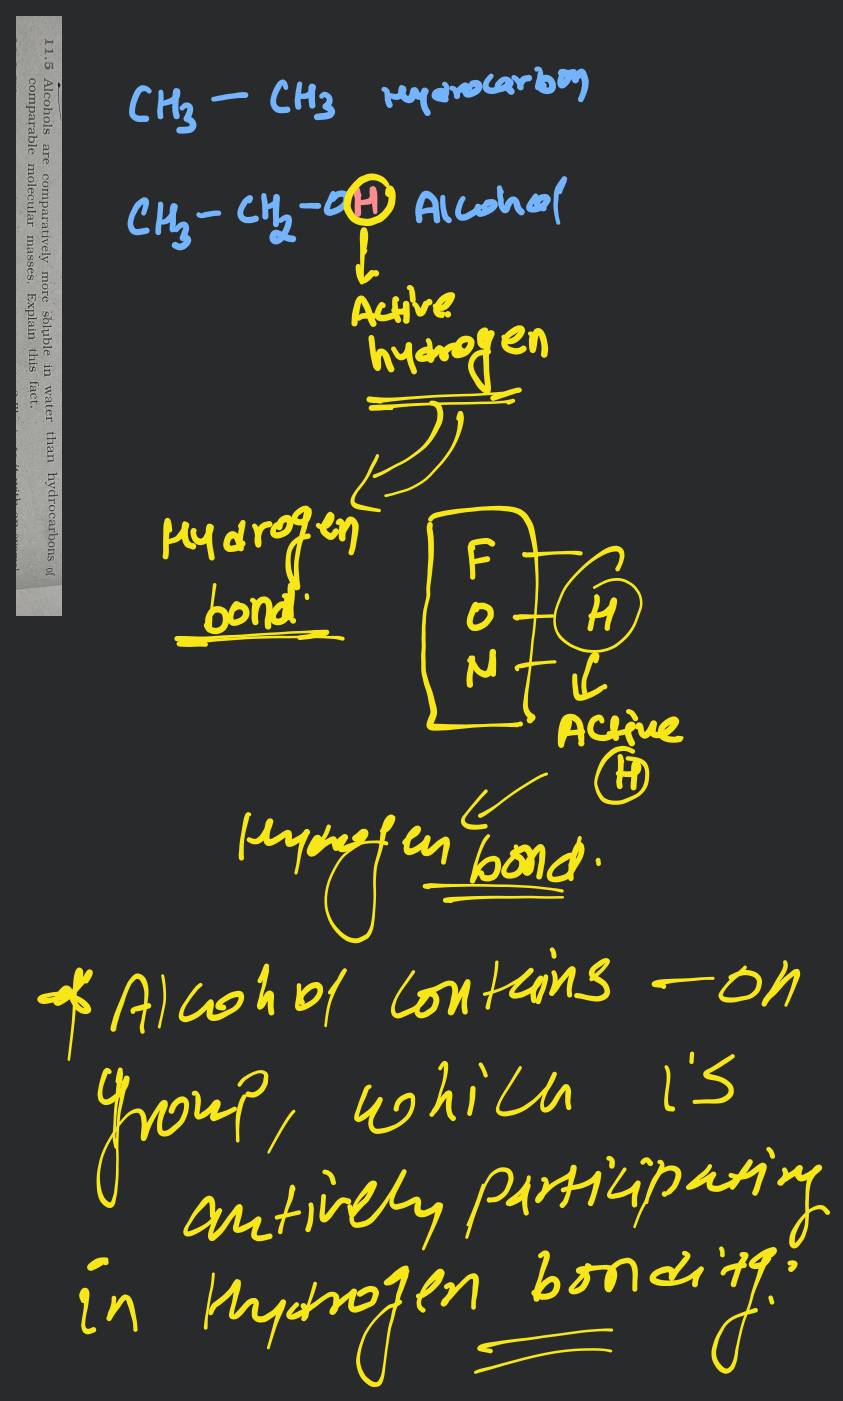 11.5 Alcohols are comparatively more soluble in water than hydrocarbons of
comparable molecular masses. Explain this fact.
CH3 – CH3 Hydrocarbon
CH3 – CH2 – OH Alcohol
Active
hydrogen
Hydrogen
bond.
F
O H
N
Active
H
Hydrogen bond.
* Alcohol contains – OH
group, which is
actively participating
in Hydrogen bonding.